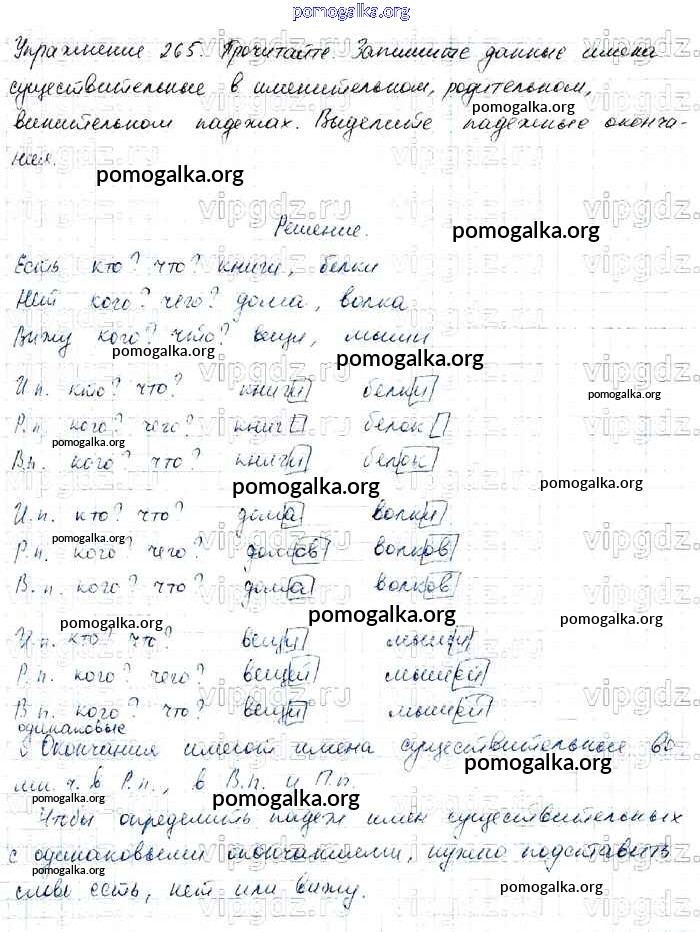 pomogalka.org
Упражнение 265. Прочитайте. Запишите данные имена
существительные в именительном, родительном,
pomogalka.org
винительном падежах. Выделите падежные оконча-
ния.
pomogalka.org
Решение. pomogalka.org
Есть кто? что? книги, белки
Нет кого? чего? дома, волка
Вижу кого? что? вещи, мыши
pomogalka.org pomogalka.org
И.п. кто? что? книги белки
pomogalka.org
Р.п. кого? чего? книг белок
pomogalka.org
В.п. кого? что? книги белок
pomogalka.org pomogalka.org
И.п. кто? что? дома волки
pomogalka.org
Р.п. кого? чего? домов волков
В.п. кого? что? дома волков
pomogalka.org pomogalka.org pomogalka.org
И.п. кто? что? вещи мыши
Р.п. кого? чего? вещей мышей
В.п. кого? что? вещи мышей
одинаковые
Окончания имеют имена существительные во
pomogalka.org
мн.ч. в Р.п., в В.п. и П.п.
pomogalka.org pomogalka.org
Чтобы определить падеж имен существительных
с одинаковыми окончаниями, нужно подставить
pomogalka.org
слово есть, нет или вижу.
pomogalka.org